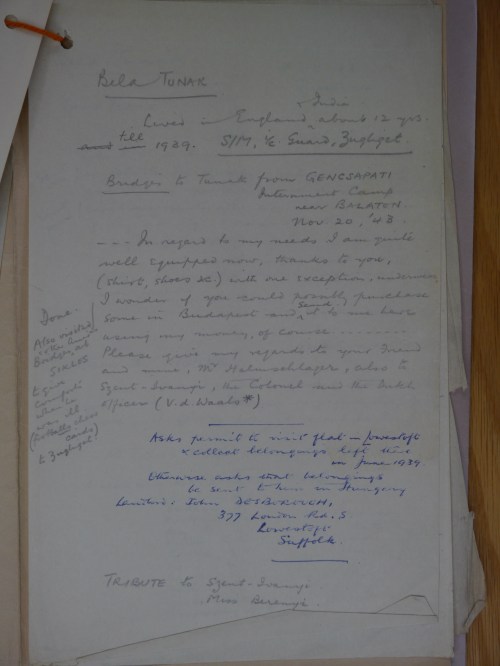 Bela TONAK
& India
Lived in England about 12 yrs.
and till 1939. S/M, i/c Guard, Zugliget.
Bridges to Tonak from GENCSAPATI
Internment Camp
near BALATON
Nov. 20, '43
--- In regard to my needs I am quite
well equipped now, thanks to you,
(shirt, shoes &c) with one exception, underwear
I wonder if you could possibly purchase
some in Budapest and send it to me here
using my money, of course ........
Please give my regards to your friend
and mine, Mr Halmschlager, also to
Szent-Ivanyi, the Colonel and the Dutch
officer (V.d. Waals*)
Done.
Also
Bridges, at
SIKLOS
to give
comforts
when he
was ill
to Zugliget)
Asks permit to visit flat in Lowestoft
& collect belongings left there
in June 1939.
Otherwise asks that belongings
be sent to him in Hungary
Landlord: John DOSBOROUGH,
377 London Rd. S
Lowestoft
Suffolk.
TRIBUTE to Szent-Ivanyi
Miss Berenyi